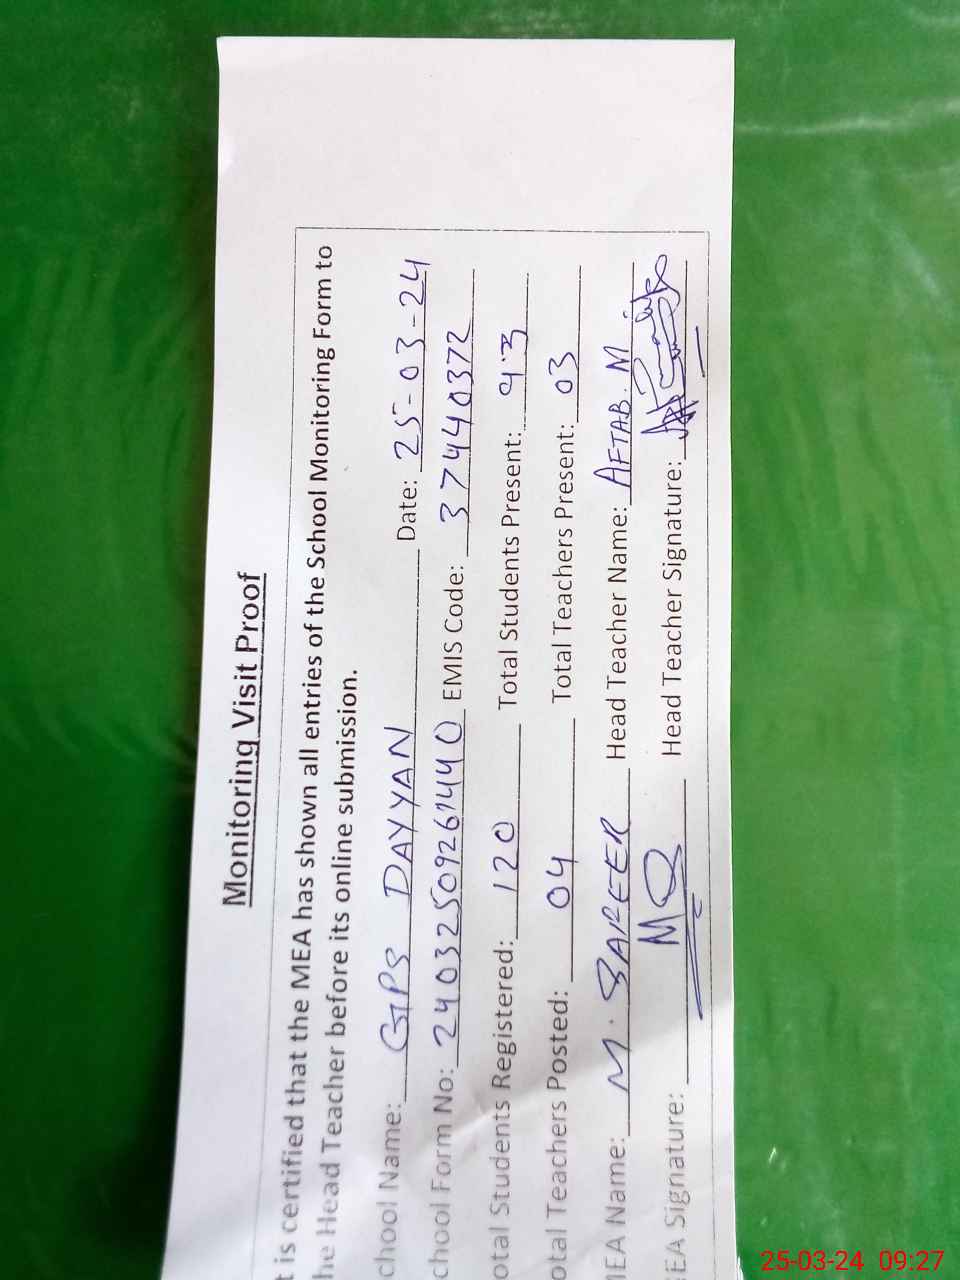 Monitoring Visit Proof
t is certified that the MEA has shown all entries of the School Monitoring Form to
he Head Teacher before its online submission.
chool Name: GPS DAYYAN Date: 25-03-24
chool Form No: 240325092614440 EMIS Code: 37440372
otal Students Registered: 120 Total Students Present: 93
otal Teachers Posted: 04 Total Teachers Present: 03
MEA Name: M. SAFEER Head Teacher Name: AFTAB. M
EA Signature: MQ Head Teacher Signature:
25-03-24 09:27